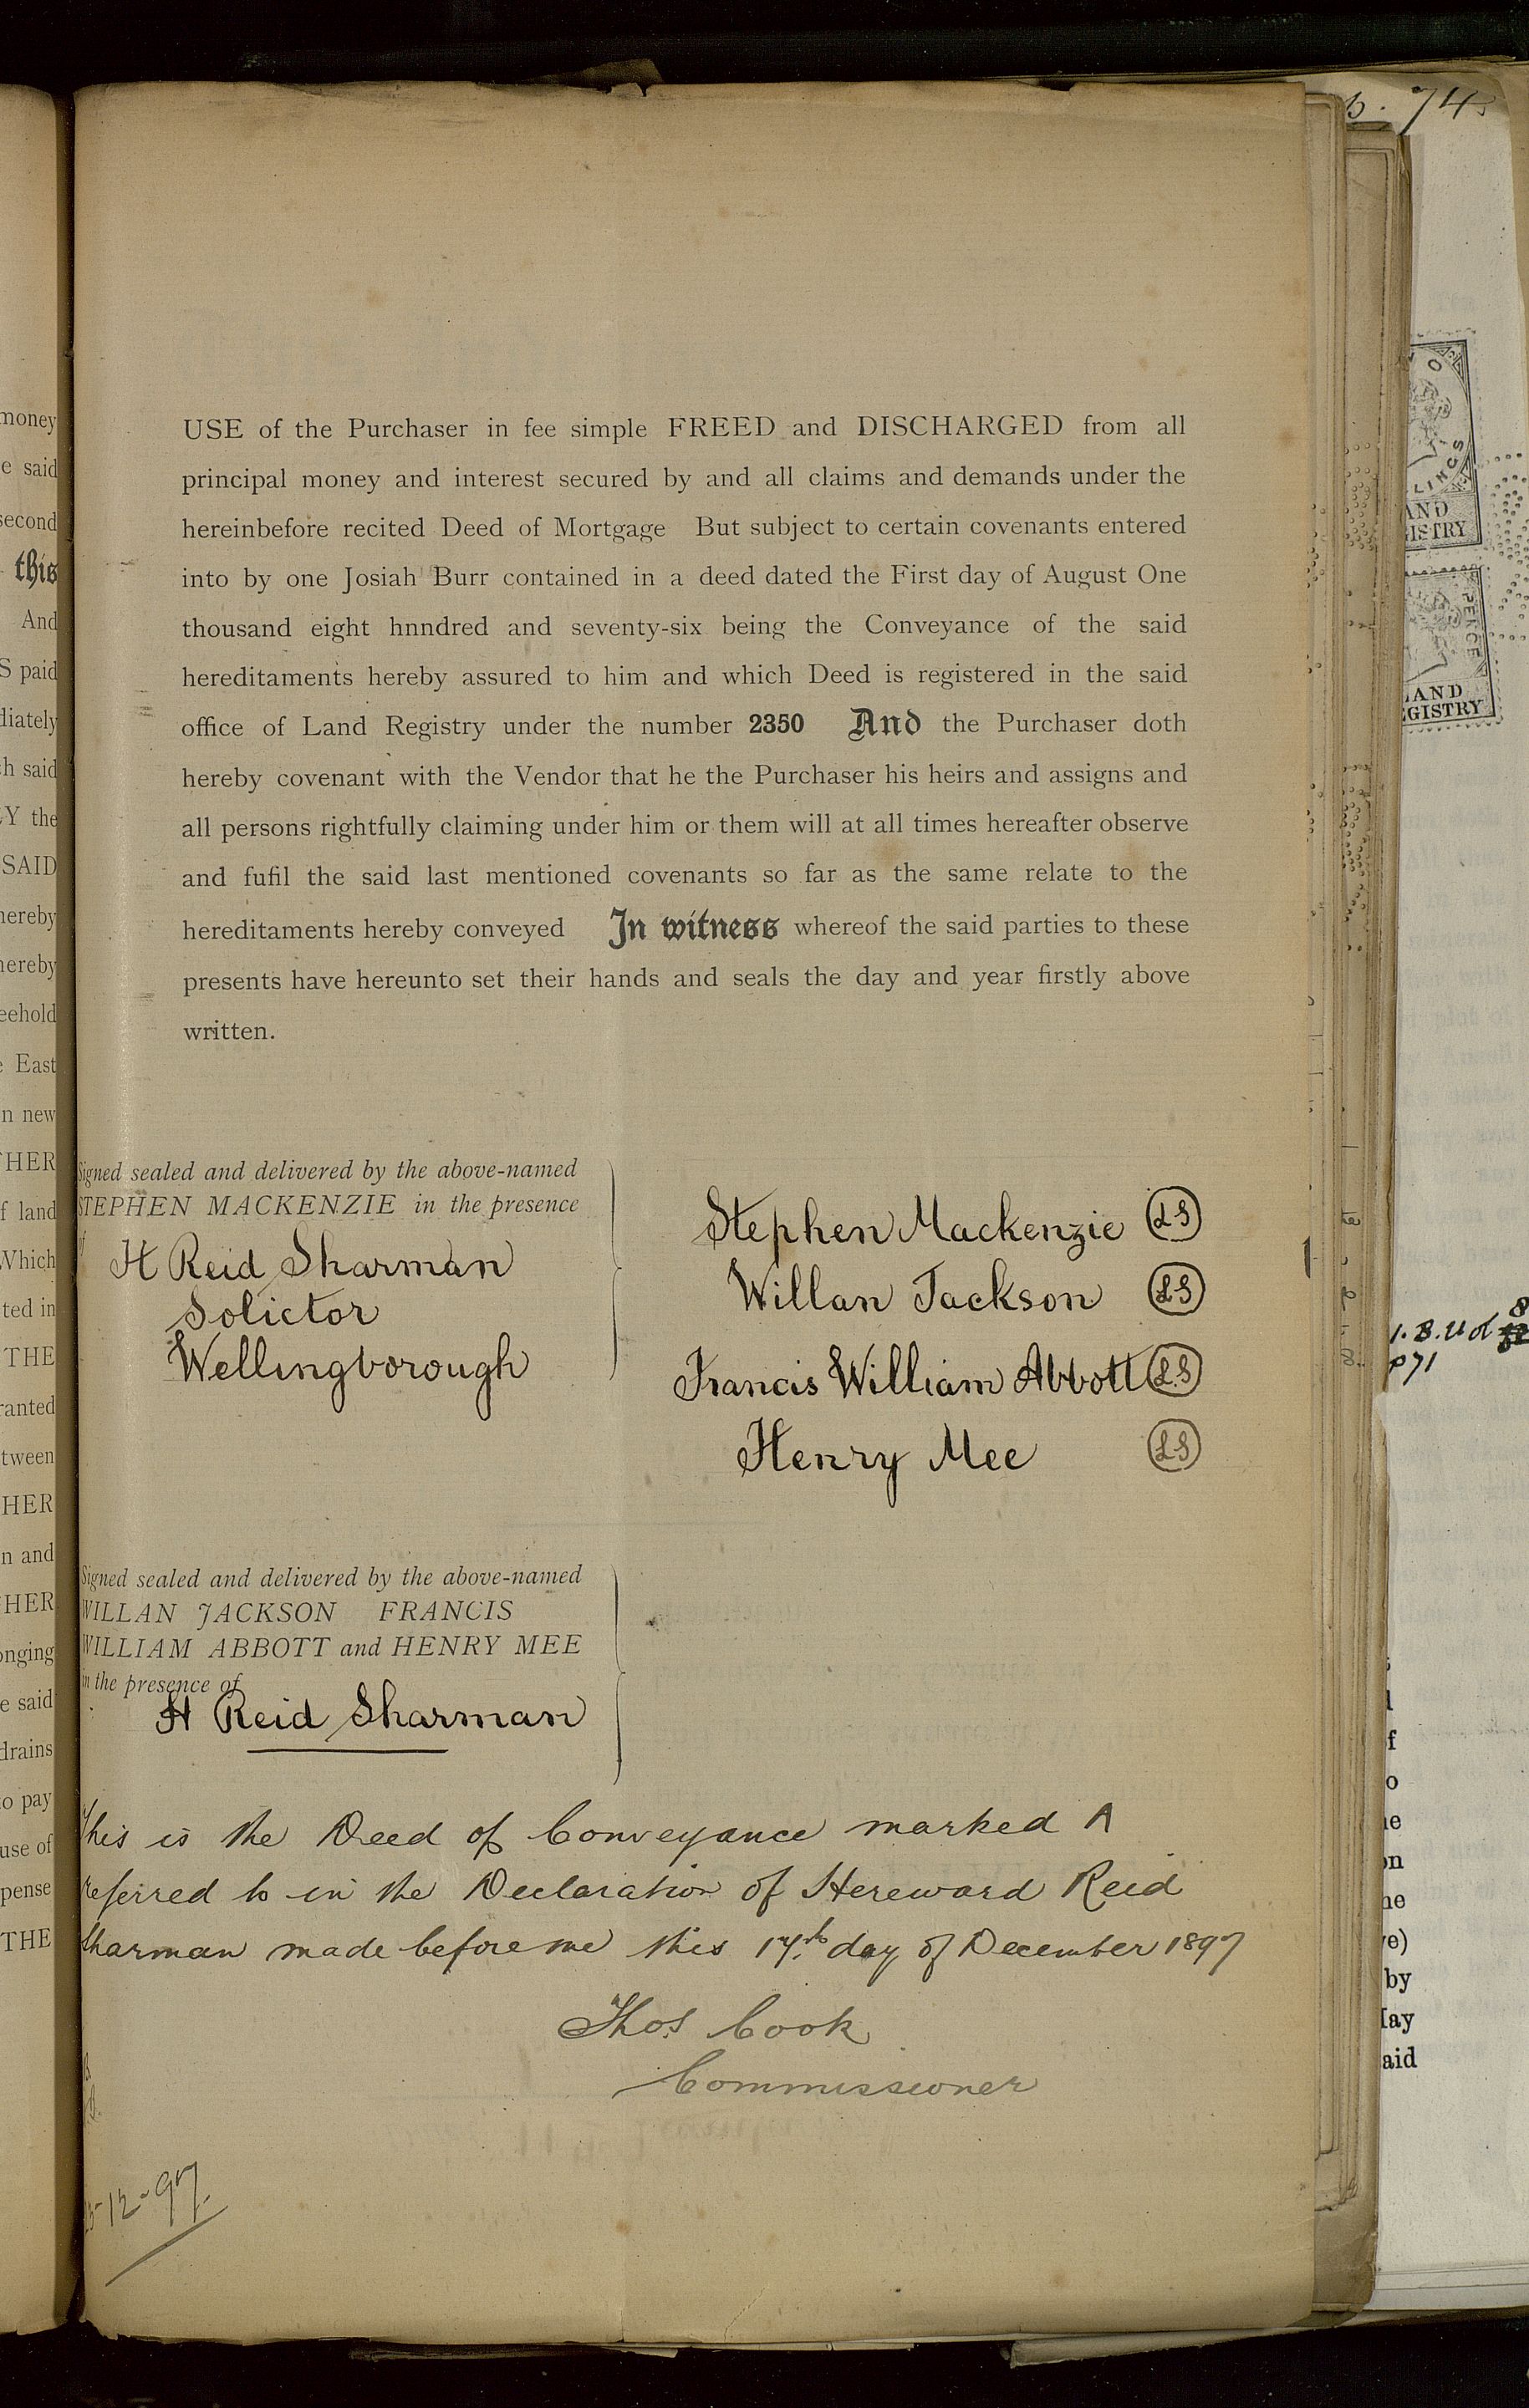 USE of the Purchaser in fee simple FREED and DISCHARGED from all
principal money and interest secured by and all claims and demands under the
hereinbefore recited Deed of Mortgage But subject to certain covenants entered
into by one Josiah Burr contained in a deed dated the First day of August One
thousand eight hnndred and seventy-six being the Conveyance of the said
hereditaments hereby assured to him and which Deed is registered in the said
office of Land Registry under the number 2350 And the Purchaser doth
hereby covenant with the Vendor that he the Purchaser his heirs and assigns and
all persons rightfully claiming under him or them will at all times hereafter observe
and fufil the said last mentioned covenants so far as the same relate to the
hereditaments hereby conveyed In witness whereof the said parties to these
presents have hereunto set their hands and seals the day and year firstly above
written.
Signed sealed and delivered by the above-named
STEPHEN MACKENZIE in the presence
of
H Reid Sharman
Solictor
Wellingborough
Stephen Mackenzie LS
Willan Jackson LS
Francis William Abbott LS
Henry Mee LS
Signed sealed and delivered by the above-named
WILLAN JACKSON FRANCIS
WILLIAM ABBOTT and HENRY MEE
in the presence of
H Reid Sharman
This is the Deed of Conveyance marked A
referred to in the Declaration of Hereward Reid
Sharman made before me this 17th day of December 1897
Thos Cook
Commissioner
-12-97.
money
e said
second
this
And
S paid
diately
h said
Y the
SAID
hereby
hereby
eehold
East
n new
THER
f land
Which
ted in
THE
ranted
tween
HER
n and
HER
onging
e said
drains
to pay
use of
pense
THE
74
LINGS
AND
ISTRY
PENCE
AND
GISTRY
p71
f
o
e
on
he
e)
by
ay
aid